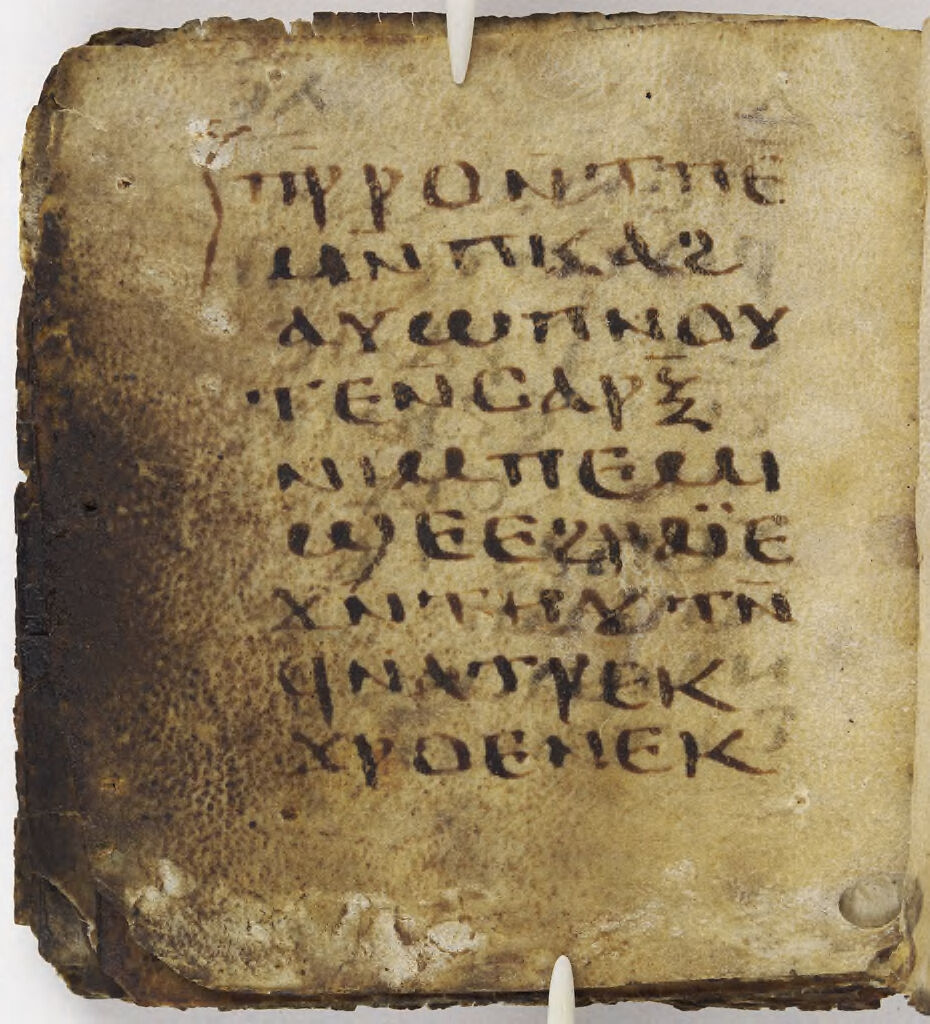 ⲡⲣ̅ⲣⲟⲛ̅ⲧⲡⲉ
ⲙⲛ̅ⲡⲕⲁϩ
ⲁⲩⲱⲡⲛⲟⲩ
ⲧⲉⲛ̅ⲥⲁⲣⲝ̅
ⲛⲓⲙⲡⲉⲙ
ϣⲉⲉϩⲣⲁⲓ̈ⲉ
ϫⲛ̅ⲧⲏⲩⲧⲛ̅
ϥⲛⲁⲧⲣⲉⲕ
ϫⲣⲟⲉⲛⲉⲕ